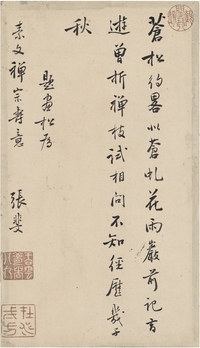 蒼松約畧似蒼虬花雨巖前記昔
遊曾折禪枝試相問不知經歷幾千
秋
題畫松為
素文禪宗壽意 張斐